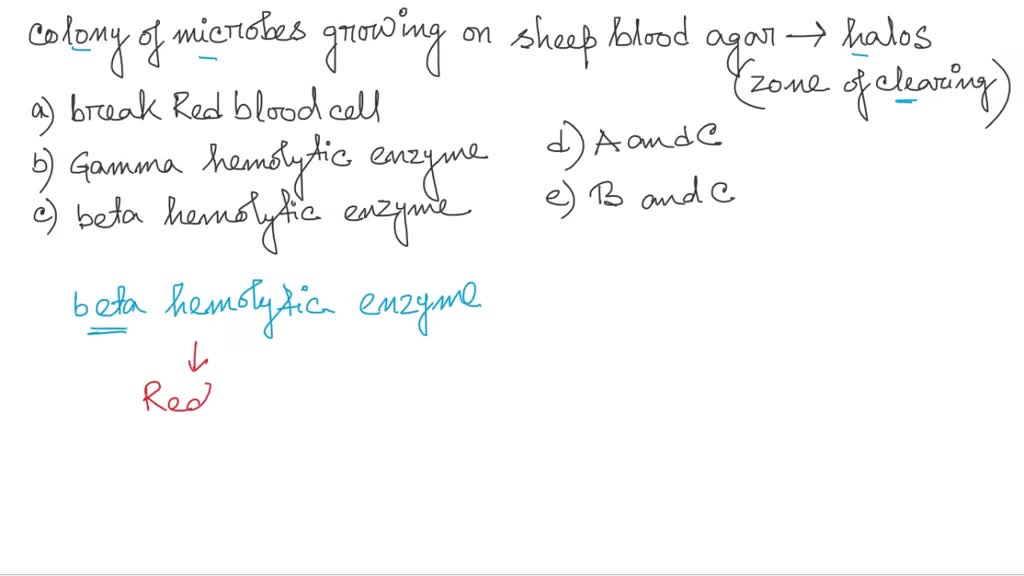 colony of microbes growing on sheep blood agar → halos
(zone of clearing)
a) break Red blood cell
b) Gamma hemolytic enzyme
c) beta hemolytic enzyme
d) A and C
e) B and C
beta hemolytic enzyme
↓
Red